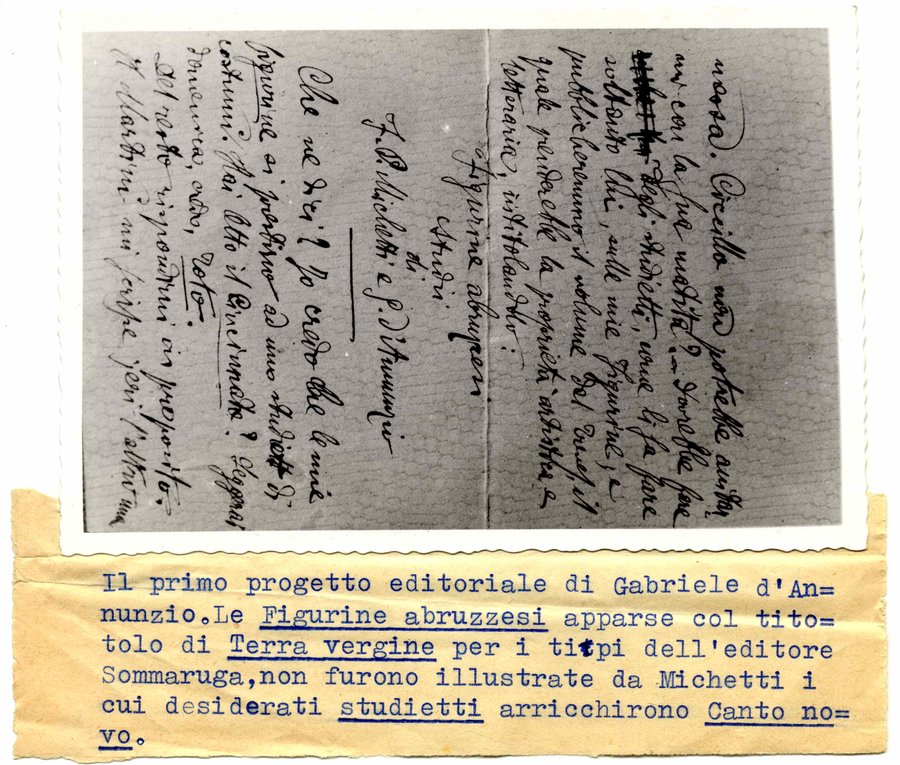 nossa. Ciccillo non potrebbe aiutar
mi con la sua matita? — Dovrebbe fare
degli studietti, come li fa fare
soltanto lui, sulle mie Figurine; e
pubblicheremmo il volume dal il
quale perderebbe la proprietà artistica e
letteraria, intitolandolo:
Figurine abruzzesi
Studii
di
F. P. Michetti e G. D'Annunzio
Che ne dici? Io credo che le mie
figurine si prestino ad uno studietto di
costumi. Hai letto il Cincinnato? Leggerai
domenica, credo, Toto.
Del resto rispondimi in proposito.
Il Martini mi jeri l'altro una
Il primo progetto editoriale di Gabriele d'An=
nunzio.Le Figurine abruzzesi apparse col tito=
tolo di Terra vergine per i titpi dell'editore
Sommaruga,non furono illustrate da Michetti i
cui desiderati studietti arricchirono Canto no=
vo.